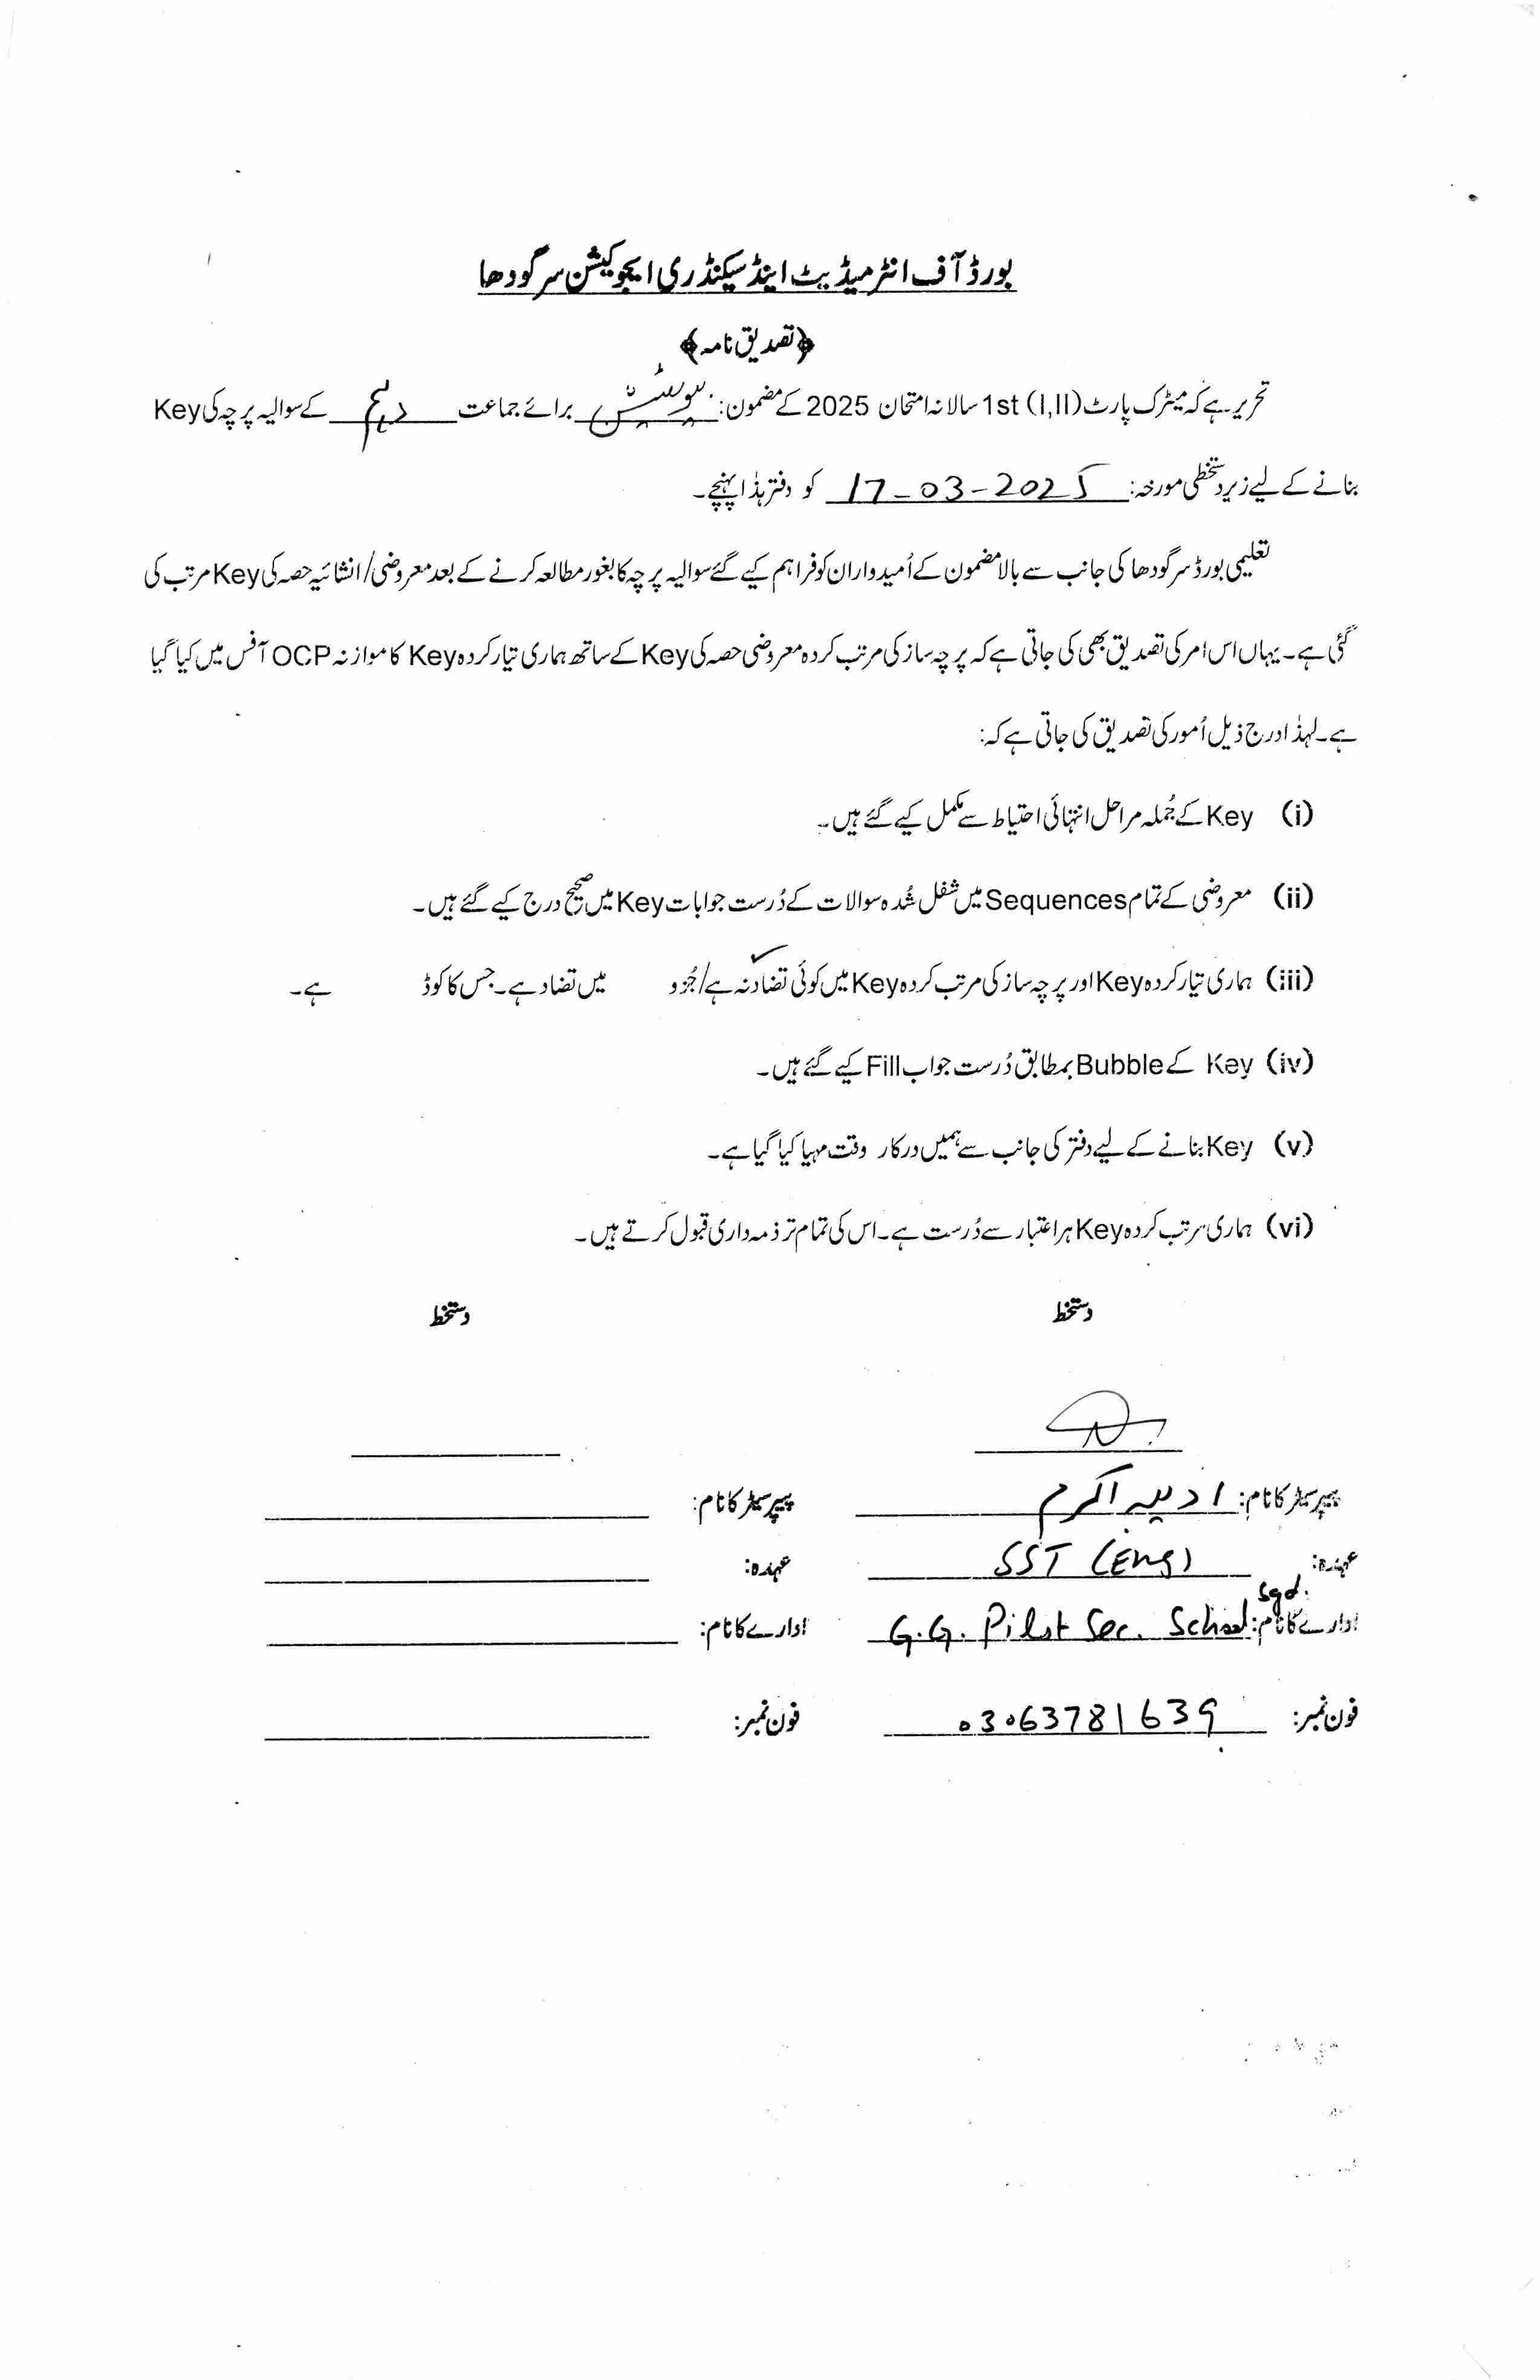 بورڈ آف انٹرمیڈیٹ اینڈ سیکنڈری ایجوکیشن سرگودھا
﴿تصدیق نامہ﴾
تحریر ہے کہ میٹرک پارٹ (I,II) 1st سالانہ امتحان 2025 کے مضمون: برائے جماعت دہم کے سوالیہ پرچہ کی Key
بنانے کے لیے زیر دستخطی مورخہ: 17-03-2025 کو دفتر ہذا پہنچے۔
تعلیمی بورڈ سرگودھا کی جانب سے بالا مضمون کے اُمیدواران کو فراہم کیے گئے سوالیہ پرچہ کا بغور مطالعہ کرنے کے بعد معروضی/انشائیہ حصہ کی Key مرتب کی
گئی ہے۔ یہاں اس امر کی تصدیق بھی کی جاتی ہے کہ پرچہ ساز کی مرتب کردہ معروضی حصہ کی Key کے ساتھ ہماری تیار کردہ Key کا موازنہ OCP آفس میں کیا گیا
ہے۔ لہٰذا درج ذیل اُمور کی تصدیق کی جاتی ہے کہ:
(i) Key کے جُملہ مراحل انتہائی احتیاط سے مکمل کیے گئے ہیں۔
(ii) معروضی کے تمام Sequences میں شفل شُدہ سوالات کے دُرست جوابات Key میں صحیح درج کیے گئے ہیں۔
(iii) ہماری تیار کردہ Key اور پرچہ ساز کی مرتب کردہ Key میں کوئی تضاد نہ ہے/جُزو میں تضاد ہے۔ جس کا کوڈ ہے۔
(iv) Key کے Bubble بمطابق دُرست جواب Fill کیے گئے ہیں۔
(v) Key بنانے کے لیے دفتر کی جانب سے ہمیں درکار وقت مہیا کیا گیا ہے۔
(vi) ہماری مرتب کردہ Key ہر اعتبار سے دُرست ہے۔ اس کی تمام تر ذمہ داری قبول کرتے ہیں۔
دستخط دستخط
پیپر سیٹر کا نام: ادیبہ اکرم پیپر سیٹر کا نام:
عہدہ: SST (Eng) عہدہ:
ادارے کا نام: G.G. Pilot Sec. School Sgd. ادارے کا نام:
فون نمبر: 03063781639 فون نمبر: